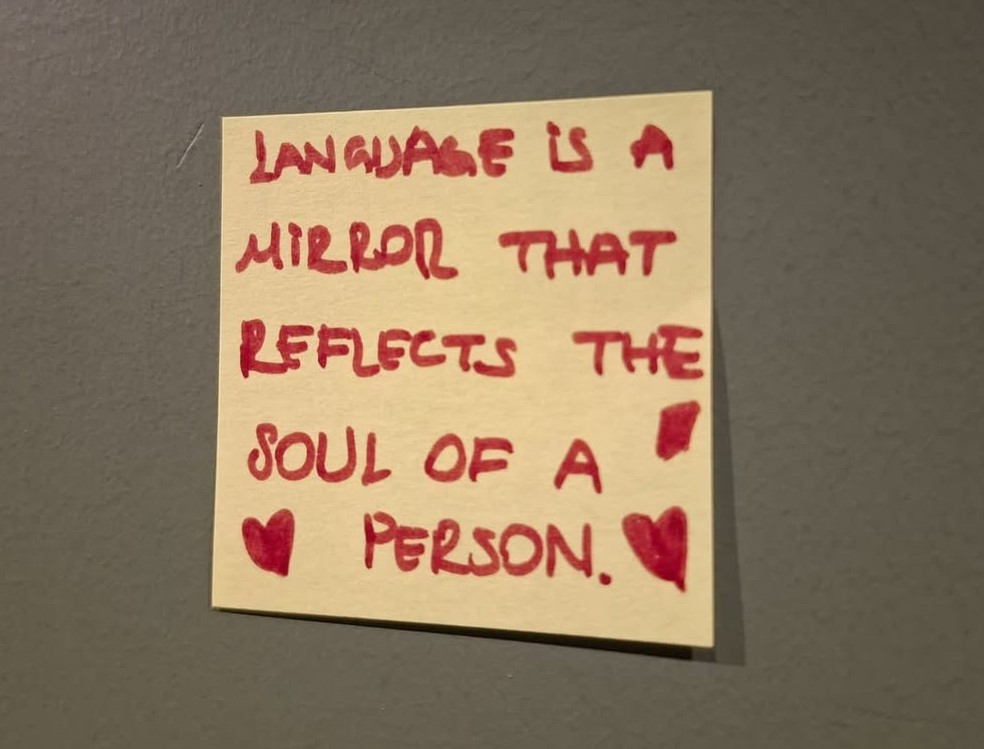 LANGUAGE IS A
MIRROR THAT
REFLECTS THE
SOUL OF A
PERSON.